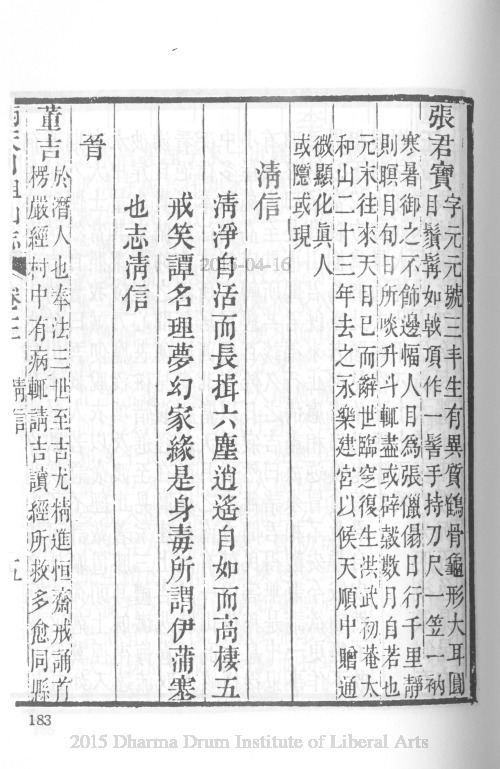 張君寶字元元號三丰生有異質鶴骨龜形大耳圓
目鬚髯如戟項作一髻手持刀尺一笠一衲
寒暑御之不飾邊幅人目為張儠𠎝日行千里靜
則瞑目旬日所啖升斗輒盡或辟穀數月自若也
元末往來天目已而辭世臨窆復生洪武初菴太
和山二十三年去之永樂建宮以候天順中贈通
微顯化眞人
或隱或現
淸信
淸淨自活而長揖六塵逍遙自如而高棲五
戒笑譚名理夢幻家緣是身毒所謂伊蒲塞
也志淸信
晉
董吉於潛人也奉法三世至吉尤精進恒齋戒誦首
楞嚴經村中有病輒請吉讀經所救多愈同縣
目祖山志 卷三 淸信 五
2015-04-16
183
2015 Dharma Drum Institute of Liberal Arts